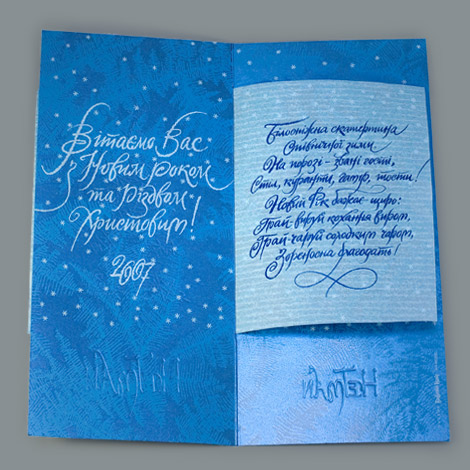 Вітаємо Вас
з Новим Роком
та Різдвом
Христовим!
2007
Білосніжна скатертина
Опівнічної зими
На порозі - звані гості,
Стіл, куранти, гамір, тости!
Новий Рік бажає щиро:
Грай-вируй кохання виром,
Грай-чаруй солодким чаром,
Зореносна благодать!